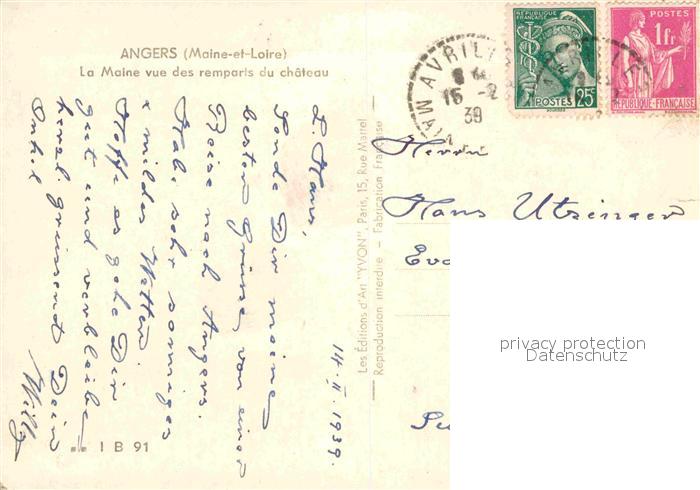 ANGERS (Maine-et-Loire)
La Maine vue des remparts du château
L. Hans,
Sende Dir meine
besten Grüsse von einer
Reise nach Angers.
Habe sehr sonniges
& mildes Wetter.
Hoff es gehe Dir
gut und verbleibe
herzl. grüssend Dein
Onkel
Willy
14. II. 1939.
I B 91
Les Éditions d'Art "YVON", Paris, 15, Rue Martel
Reproduction interdite - Fabrication Française
AVRILL
15 -2
39
REPUBLIQUE FRANÇAISE
POSTES 25c
POSTES
1fr
REPUBLIQUE-FRANÇAISE
Herrn
Hans Utzinger
privacy protection
Datenschutz